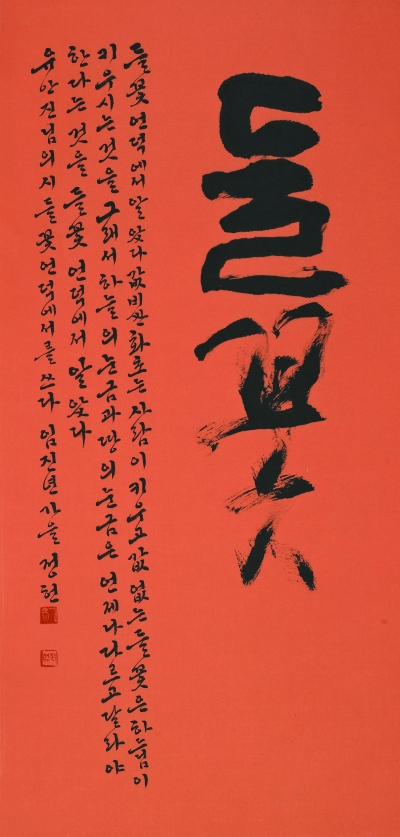 들꽃
들꽃 언덕에서 알았다 값비싼 화초는 사람이 키우고 값 없는 들꽃은 하느님이
키우시는 것을 그래서 하늘의 눈금과 땅의 눈금은 언제나 다르고 달라야
한다는 것을 들꽃 언덕에서 알았다
유안진님의 시 들꽃 언덕에서를 쓰다 임진년 가을 정헌